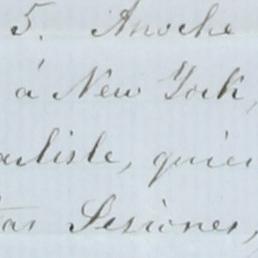 5. Anoche
á New York,
arlisle, quien
tas Sesiones,